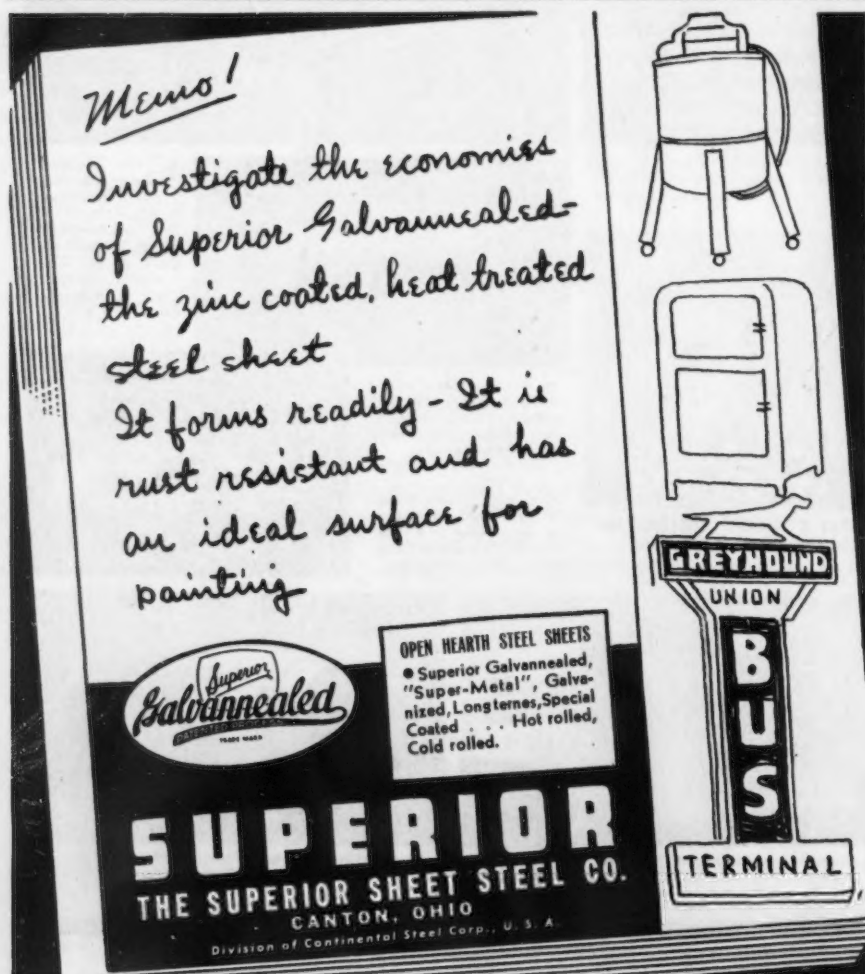 Memo!
Investigate the economies
of Superior Galvannealed-
the zinc coated, heat treated
steel sheet
It forms readily - It is
rust resistant and has
an ideal surface for
painting
Superior
Galvannealed
TRADE MARK
OPEN HEARTH STEEL SHEETS
• Superior Galvannealed,
"Super-Metal", Galva-
nized, Longternes, Special
Coated . . . Hot rolled,
Cold rolled.
SUPERIOR
THE SUPERIOR SHEET STEEL CO.
CANTON, OHIO
Division of Continental Steel Corp., U. S. A.
GREYHOUND
UNION
BUS
TERMINAL